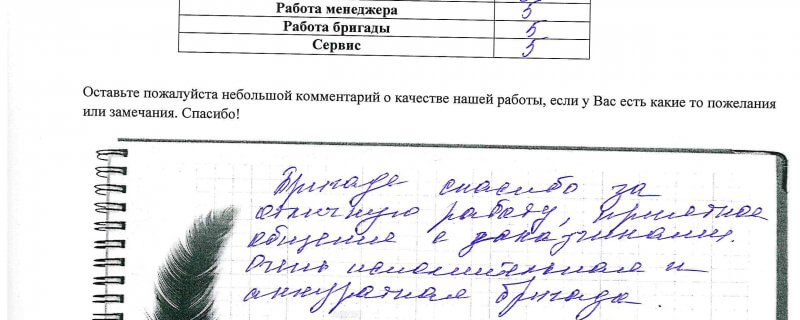 Работа менеджера 5
Работа бригады 5
Сервис 5
Оставьте пожалуйста небольшой комментарий о качестве нашей работы, если у Вас есть какие то пожелания
или замечания. Спасибо!
Бригаде спасибо за
отличную работу, приятное
общение с заказчиками.
Очень исполнительная и
аккуратная бригада.